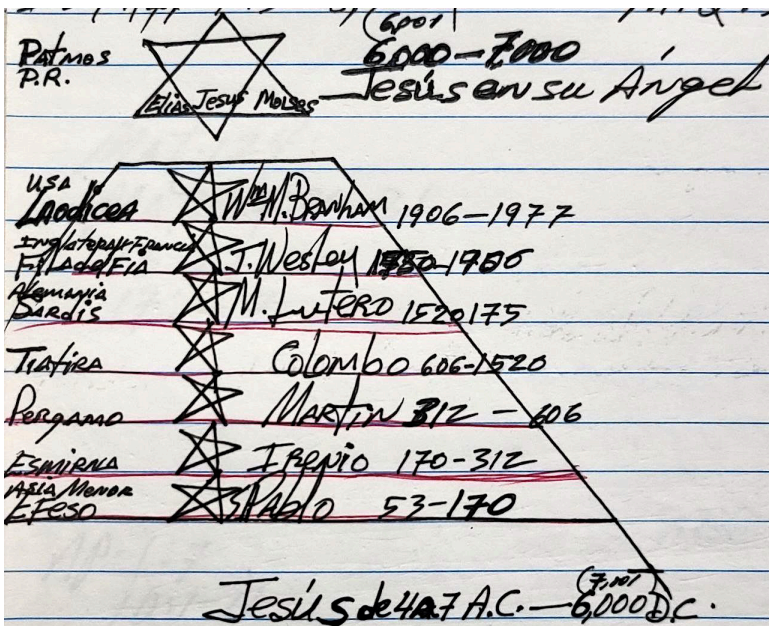 (6,001)
Patmos 6,000-7,000
P.R.
Elias Jesus Moises — Jesús en su Ángel
USA
Laodicea Wm M. Branham 1906-1977
Inglaterra y Francia
Filadelfia J. Wesley
Alemania
Sardis M. Lutero 1520175
Tiatira Colombo 606-1520
Pergamo Martin 312 - 606
Esmirna Irenio 170-312
Asia Menor
Efeso Pablo 53-170
(7,001)
Jesús de 4 a 7 A.C. — 6,000 D.C.